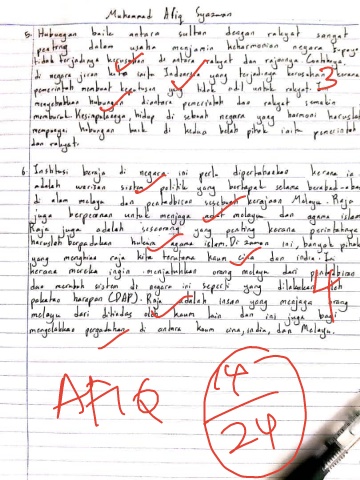 Muhammad Afiq Syazwan
5. Hubungan baik antara sultan dengan rakyat sangat
penting dalam usaha menjamin keharmonian negara supaya
tidak terjadinya kerusuhan di antara rakyat dan rajanya. Contohnya,
di negara jiran kita iaitu Indonesia yang terjadinya kerusuhan kerana
pemerintah membuat keputusan yang tidak adil untuk rakyat.
3
menyebabkan hubungan diantara pemerintah dan rakyat semakin
memburuk. Kesimpulannya, hidup di sebuah negara yang harmoni haruslah
mempunyai hubungan baik di kedua belah pihak iaitu pemerintah
dan rakyat.
6. Institusi beraja di negara ini perlu dipertahankan kerana ia
adalah warisan sistem politik yang bertapak selama berabad-abad
di alam melayu dan pentadbiran sesebuah kerajaan Melayu. Raja
juga berperanan untuk menjaga adat melayu dan agama islam.
Raja juga adalah seseorang yang penting kerana perintahnya
haruslah berpandukan hukum agama islam. Di zaman ini, banyak pihak
yang menghina raja kita terutama kaum cina dan india. Ini
kerana mereka ingin menjatuhkan orang melayu dari pentadbiran
dan merubah sistem di negara ini seperti yang dilakukan oleh
4
pakatan harapan (DAP). Raja adalah insan yang menjaga orang
melayu dari ditindas oleh kaum lain dan ini juga bagi
mengelakkan pergaduhan di antara kaum cina, india, dan Melayu.
AFIQ
14
24